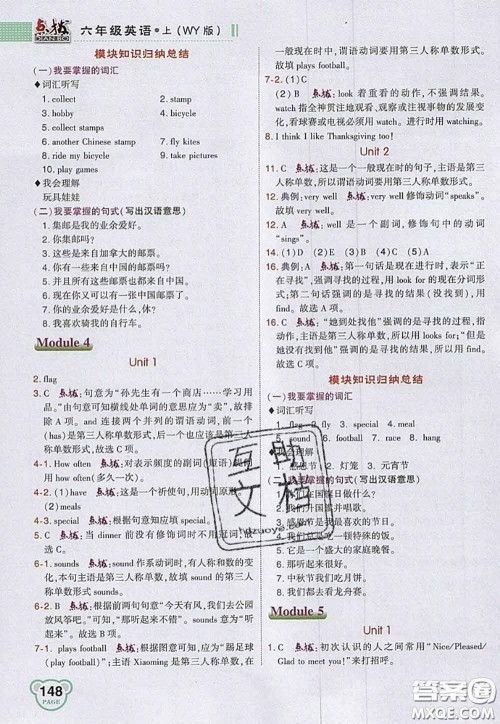 点拨 DIAN BO 六年级英语·上(WY版)
模块知识归纳总结
(一)我要掌握的词汇
◆词汇听写
1. collect 2. stamp
3. hobby 4. bicycle
5. collect stamps
6. another Chinese stamp 7. fly kites
8. ride my bicycle 9. take pictures
10. play games
◆我会理解
玩具娃娃
(二)我要掌握的句式(写出汉语意思)
1. 集邮是我的业余爱好。
2. 你集邮吗?
3. 这些是来自加拿大的邮票。
4. 你有一些来自中国的邮票吗?
5. 并且所有这些邮票都来自中国。
6. 你现在又可以有一张中国邮票了。
7. 你的业余爱好是什么,
8. 我喜欢骑我的自行车。
Module 4
Unit 1
1. flag
3. C 点拨:句意为“孙先生有一个商店……学习用
品。”由句意可知横线处单词的意思应为“卖”,故排
除A项。and连接两个并列的谓语动词,前一个
(has)是第三人称单数形式,后一个也应该是第三人
称单数形式,故选C项。
4-1. How often 点拨:对表示频度的副词(短语)提问
用how often(多久一次)。
4-2. (1) have 点拨:这是一个祈使句,用动词原形。
(2) meals
4-3. special 点拨:根据句意可知应填special。
5. C 点拨:当dinner前没有修饰词时不用冠词,故
选C。
6-1. sounds 点拨:sound作系动词时,有人称和数的变
化,本句中主语是第三人称单数,故填sound的第三
人称单数形式sounds。
6-2. B 点拨:根据前两句句意“今天有风,我们去公园
放风筝吧。”可知,“那听起来不错。”即“That sounds
good.”。故选B项。
7-1. plays football 点拨:根据图意可知,图片意思为“踢
足球(play football)”;主语Xiaoming是第三人称单数,在
一般现在时中,谓语动词要用第三人称单数形式。
故填plays football。
7-2. (1) C (2) D 点拨:look着重看的动作,不强调结果。
watch指全神贯注地观看、观察或注视事物的发展变
化,看球赛或电视必须用watch。故选C、D项。
8. I think I like Thanksgiving too!
Unit 2
11. C 点拨:这是一个一般现在时的句子,主语是第三
人称单数,所以谓语动词要用第三人称单数形式。
12. very 点拨:very well修饰动词“speaks”。
故填very well。
14. C 点拨:well是一个副词,修饰句中的动词
“sings”。
15. (1) D (2) A (3) B (4) C (5) E
16. 典例:A 点拨:第一句话是现在进行时,表示“正
在寻找”,强调寻找的过程,用look for的现在分词形
式。第二句话强调的是寻找的结果(没找到),用
find。故选A项。
16-1. C 点拨:“她到处找他”强调的是寻找的过程,指
动作,主语是第三人称单数,所以用looks for;“但是
没找到他”,强调的是寻找的结果,用find。故选C项。
模块知识归纳总结
(一)我要掌握的词汇
◆词汇听写
1. 2. flag 3. fly 4. special 5. meal
6. sound 7. football 8. race 9. hang
◆我会理解
1. 感恩节 2. 灯笼 3. 元宵节
(二)我要掌握的句式(写出汉语意思)
1. 你们在国庆日做什么?
2. 我们升国旗并唱歌。
3. 感恩节是我最喜欢的节日。
4. 我们总是吃一顿特殊的饭。
5. 它是一个盛大的家庭晚餐。
6. 那听起来很棒!
7. 中秋节我们吃月饼。
8. 我们都去看龙舟赛。
Module 5
Unit 1
1. C 点拨:初次认识的人之间常用“Nice/Pleased/
Glad to meet you!”来打招呼。
互助文档
hdzuoye.com
148
PAGE
答案圈
MXQE.COM